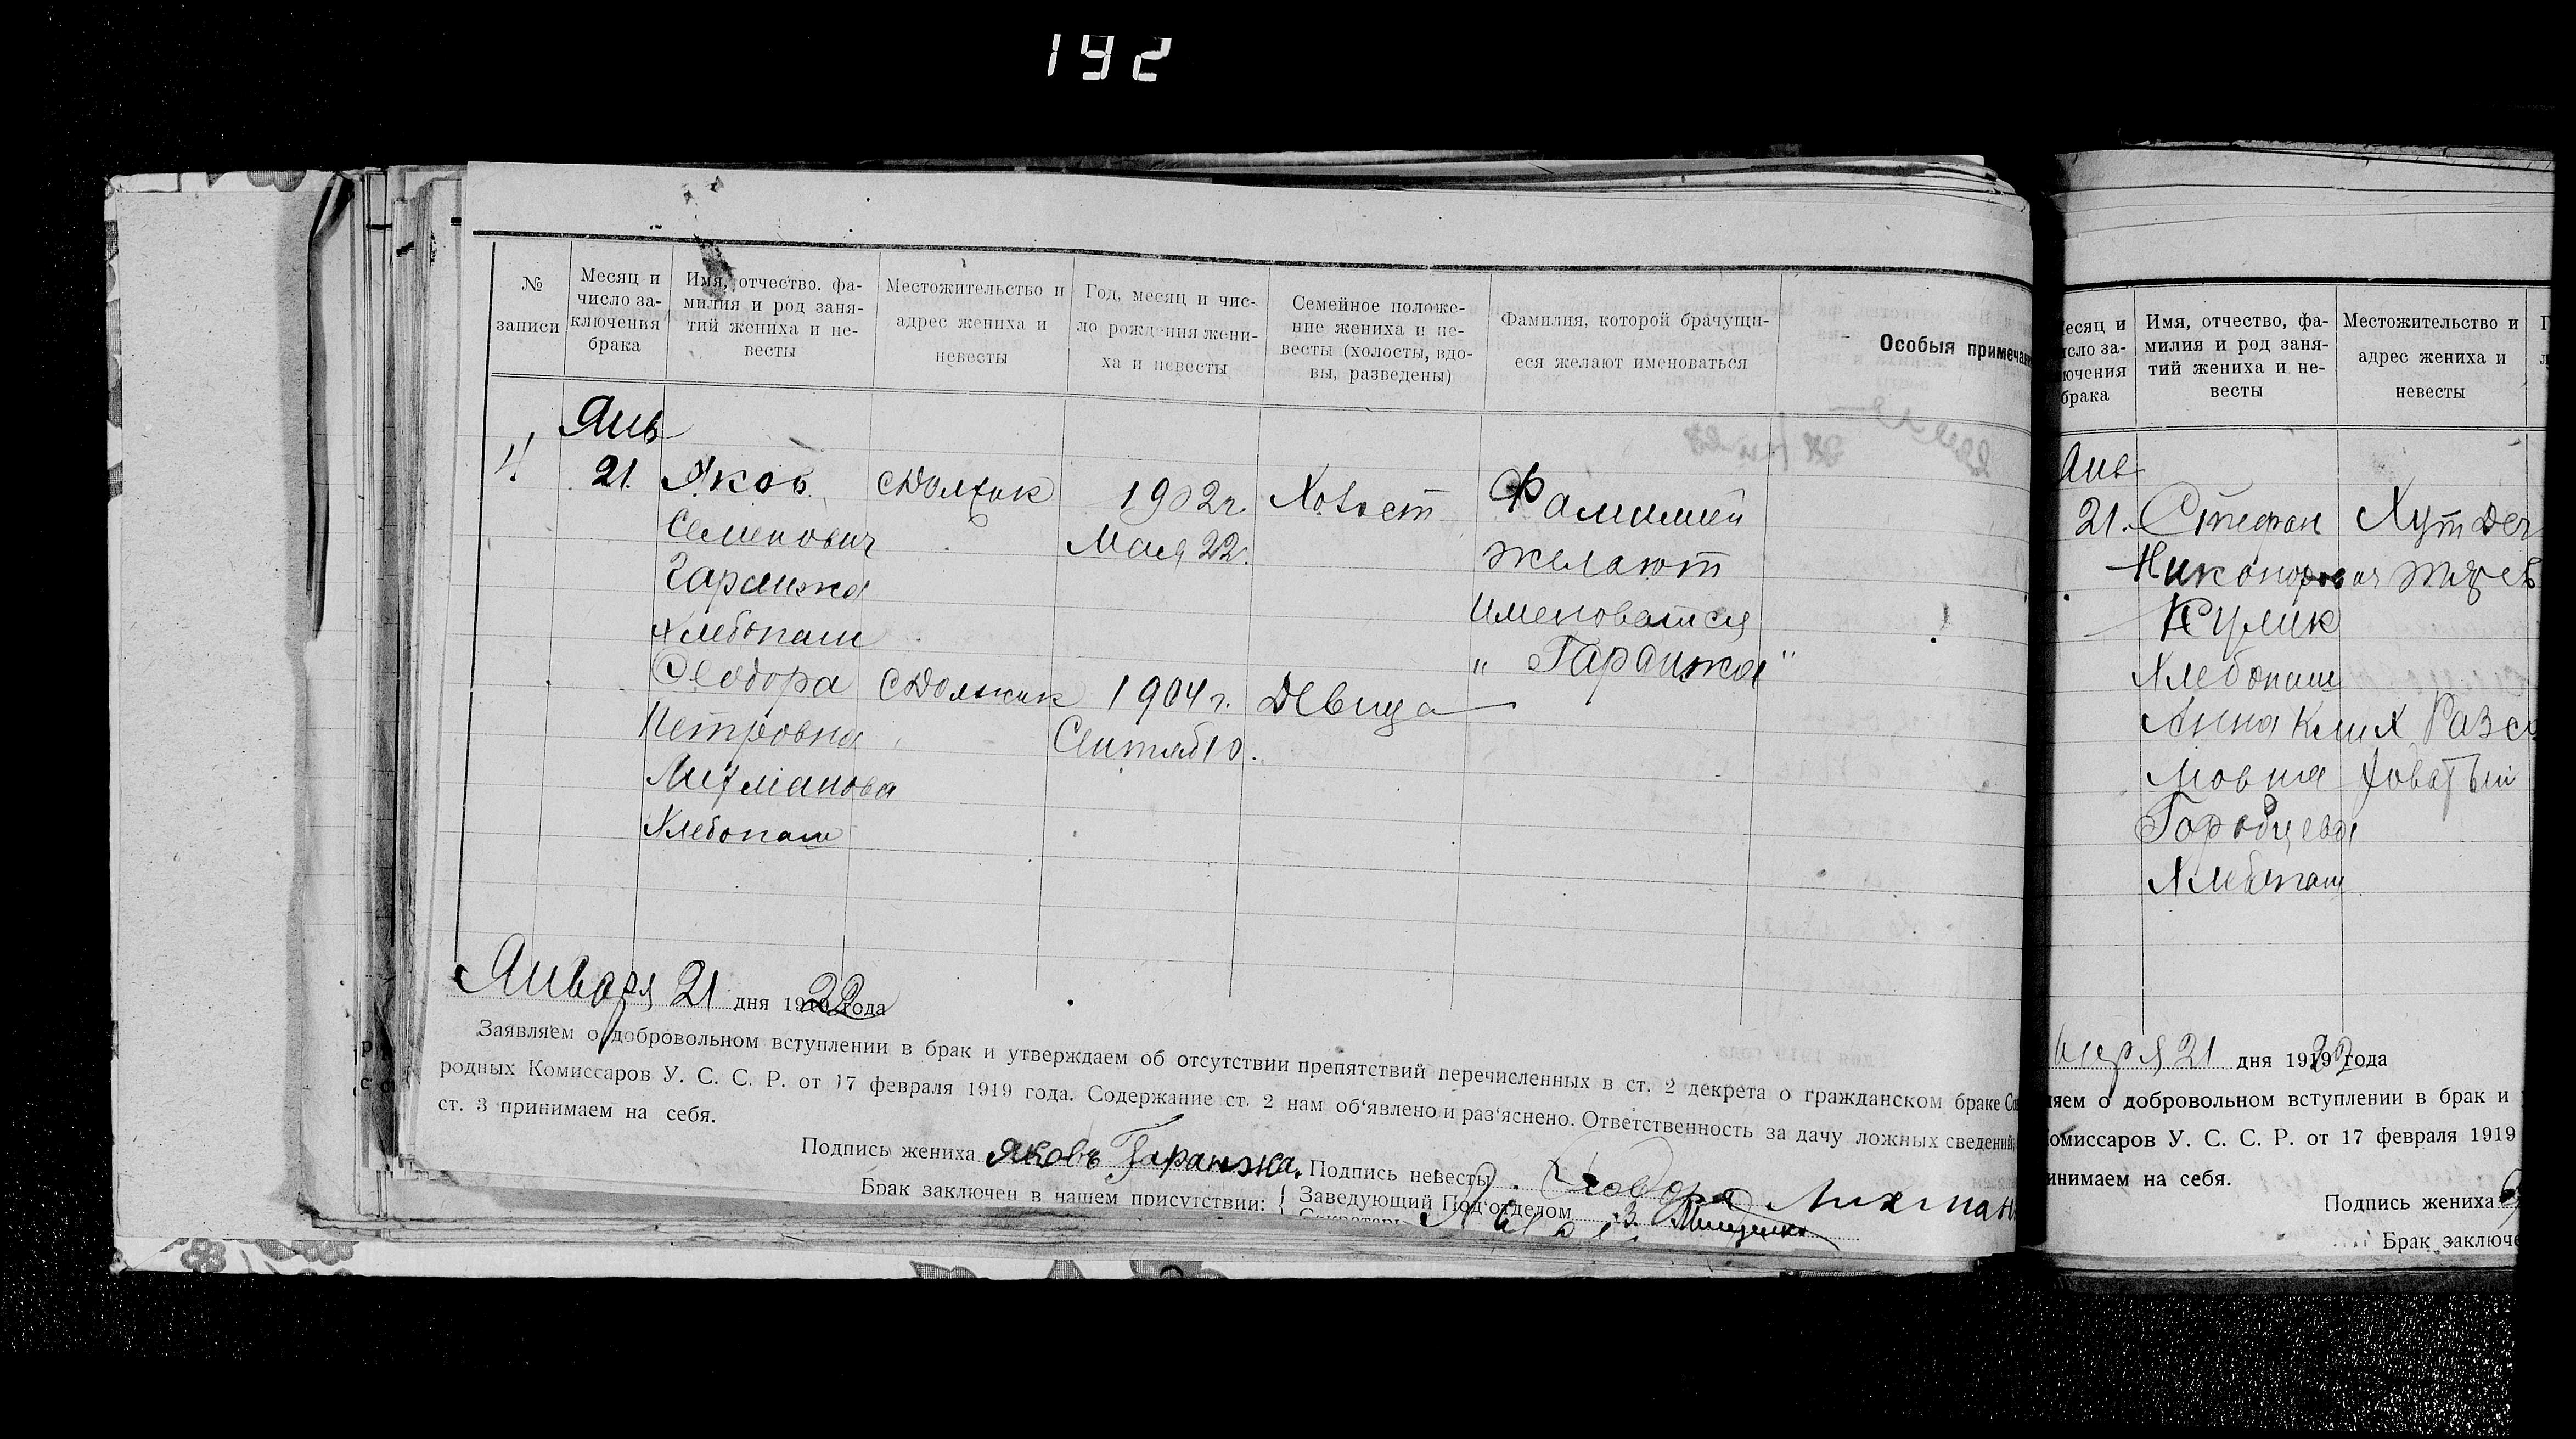 192
№ записи
Месяц и число заключения брака
Имя, отчество. фамилия и род занятий жениха и невесты
Местожительство и адрес жениха и невесты
Год, месяц и число рождения жениха и невесты
Семейное положение жениха и невесты (холосты, вдовы, разведены)
Фамилия, которой брачущиеся желают именоваться
Особыя примечан
Янв
4 21. Яков с Должик 1902 г. Холост Фамилией
Семенович Мая 22. желают
Гаранжа именоватся
Хлебопаш „ Гаранжа"
Феодора с Должик 1904 г. Девица
Петровна Сентяб 10.
Лихманова
Хлебопаш
Января 21 дня 1922 года
Заявляем о добровольном вступлении в брак и утверждаем об отсутствии препятствий перечисленных в ст. 2 декрета о гражданском браке Со
родных Комиссаров У. С. С. Р. от 17 февраля 1919 года. Содержание ст. 2 нам об'явлено и раз'яснено. Ответственность за дачу ложных сведений,
ст. 3 принимаем на себя.
Подпись жениха Яковъ Гаранжа. Подпись невесты Феодора Лихман
Брак заключен в нашем присутствии: { Заведующий Под'отделом
Секретарь
есяц и
исло за-
ючения
брака
Имя, отчество, фамилия и род занятий жениха и невесты
Местожительство и адрес жениха и невесты
Янв
21. Стефан Хут Дег
Никонорович
Кулик
Хлебопаш
Анна Клих
мовна
Городцева
Хлебопаш
21 дня 1922 года
яем о добровольном вступлении в брак и
омиссаров У. С. С. Р. от 17 февраля 1919
инимаем на себя.
Подпись жениха
Брак заключе